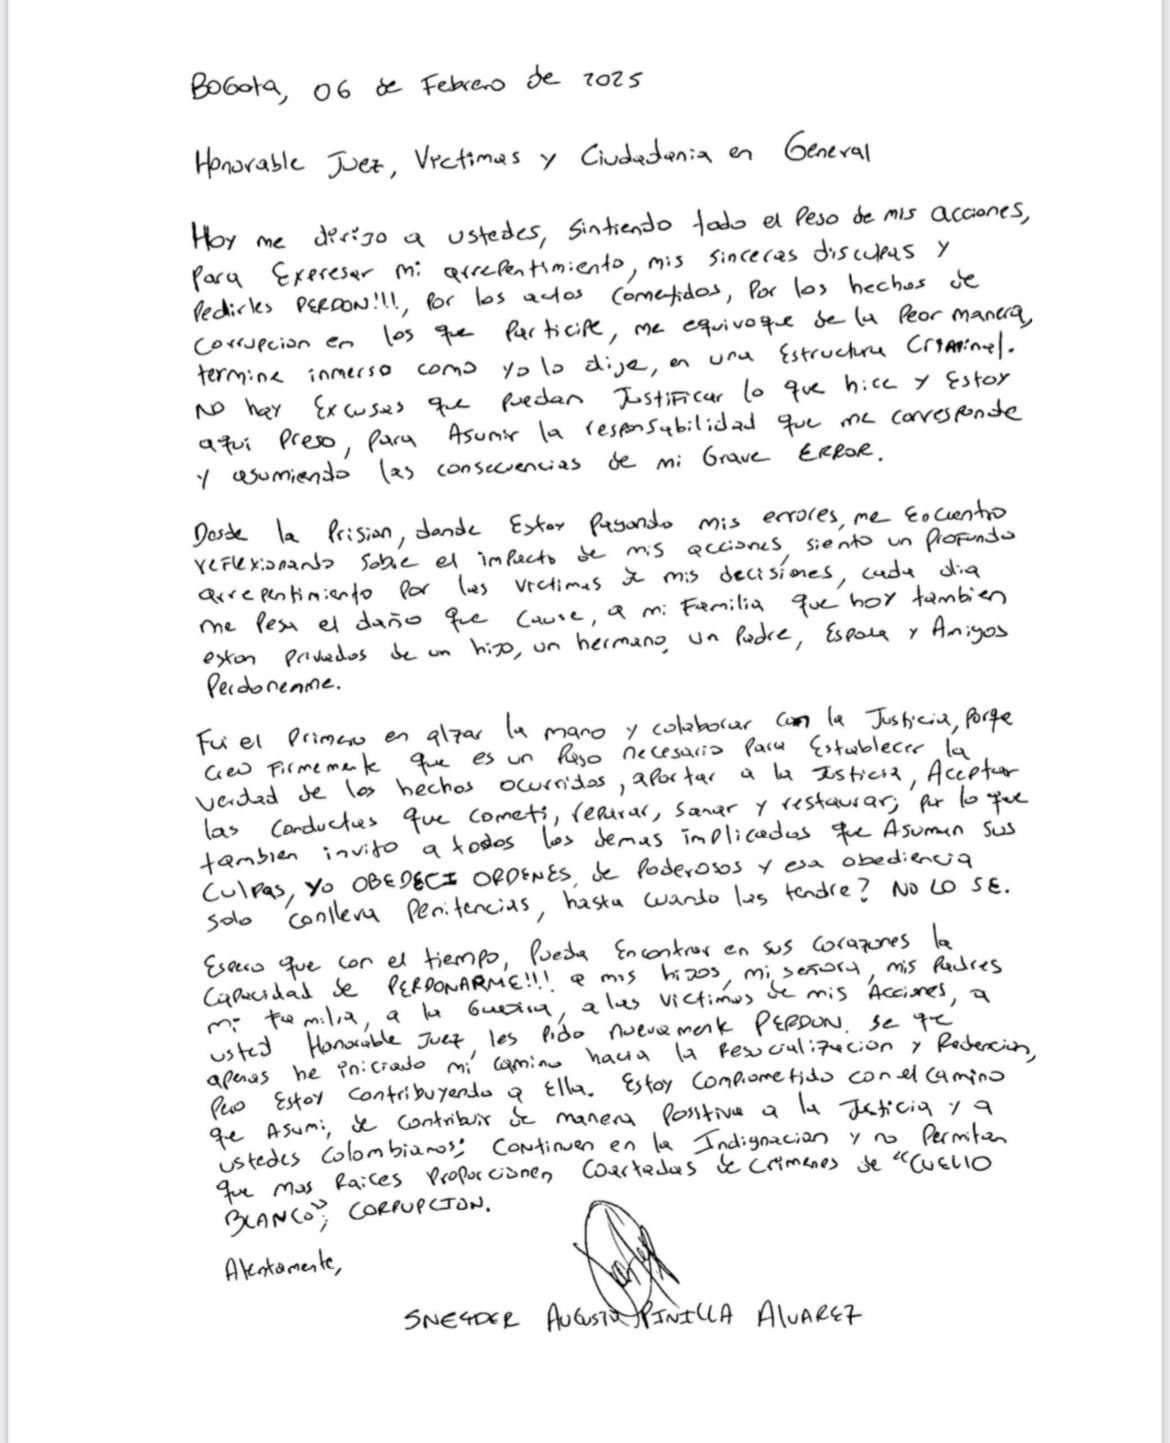 Bogota, 06 de Febrero de 2025
Honorable Juez, Victimas y Ciudadania en General
Hoy me dirijo a ustedes, sintiendo todo el Peso de mis acciones,
Para Expresar mi arrepentimiento, mis sinceras disculpas y
Pedirles PERDON!!!, Por los actos Cometidos, Por los hechos de
Corrupcion en los que Participe, me equivoque de la Peor manera,
termine inmerso como yo lo dije, en una Estructura Criminal.
NO hay Excusas que Puedan Justificar lo que hice y Estoy
aqui Preso, Para Asumir la responsabilidad que me corresponde
y asumiendo las consecuencias de mi Grave ERROR.
Desde la Prision, donde Estoy Pagando mis errores, me Encuentro
reflexionando Sobre el impacto de mis acciones, siento un Profundo
arrepentimiento Por las victimas de mis decisiones, cada dia
me Pesa el daño que Cause, a mi Familia que hoy tambien
estan Privados de un hijo, un hermano, un Padre, Esposo y Amigos
Perdonenme.
Fui el Primero en alzar la mano y colaborar con la Justicia, Porqe
Creo Firmemente que es un Paso necesario Para Establecer la
verdad de los hechos ocurridos, aportar a la Justicia, Aceptar
las Conductas que Cometi, reparar, sanar y restaurar; Por lo que
tambien invito a todos los demas implicados que Asuman sus
Culpas, Yo OBEDECI ORDENES de Poderosos y esa obediencia
solo Conlleva Penitencias, hasta cuando las tendre? NO LO SE.
Espero que con el tiempo, Pueda Encontrar en sus Corazones la
Capacidad de PERDONARME!!! a mis hijos, mi señora, mis Padres
mi familia, a la Guajira, a las victimas de mis Acciones, a
usted Honorable Juez, les Pido nuevamente PERDON. Se qe
apenas he iniciado mi Camino hacia la Resocialización y Redencion,
Pero Estoy Contribuyendo a Ella. Estoy Comprometido con el Camino
qe Asumi, de contribuir de manera Positiva a la Justicia y a
ustedes Colombianos; Continuen en la Indignacion y no Permitan
que mas Raices Proporcionen Coartadas de Crimenes de "CUELLO
BLANCO"; CORRUPCION.
Atentamente,
SNEYDER AUGUSTO PINILLA ALVAREZ